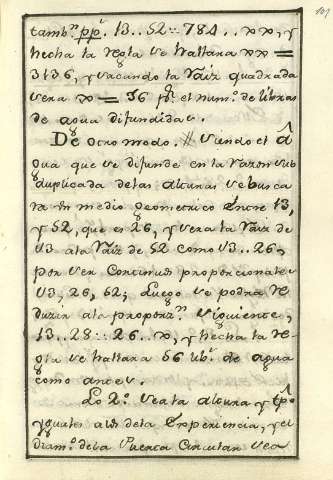 107
tambⁿ. pp.ˡ 13..52::784..xx, y
hecha la regla se hallara xx=
3136, y sacando la raiz quadrada
sera x=56 p.ʳ el num.º de libras
de agua difundidas.
De otro modo. // Siendo el A
gua que se difunde en la razon sub
duplicada delas alturas se busca
ra un medio geometrico entre 13,
y 52, que es 26, y sera la raiz de
13 ala raiz de 52 como 13..26,
por ser continuos proporcionales
13, 26, 52; Luego se podra re
duzir ala proporz.ⁿ siguiente,
13..28::26..x, y hecha la re
gla se hallara 56 lib.ˢ de agua
como antes.
Lo 2.º sea la altura, y tp.º
yguales a los dela Experiencia, y el
diam.º dela Puerta Circular sea